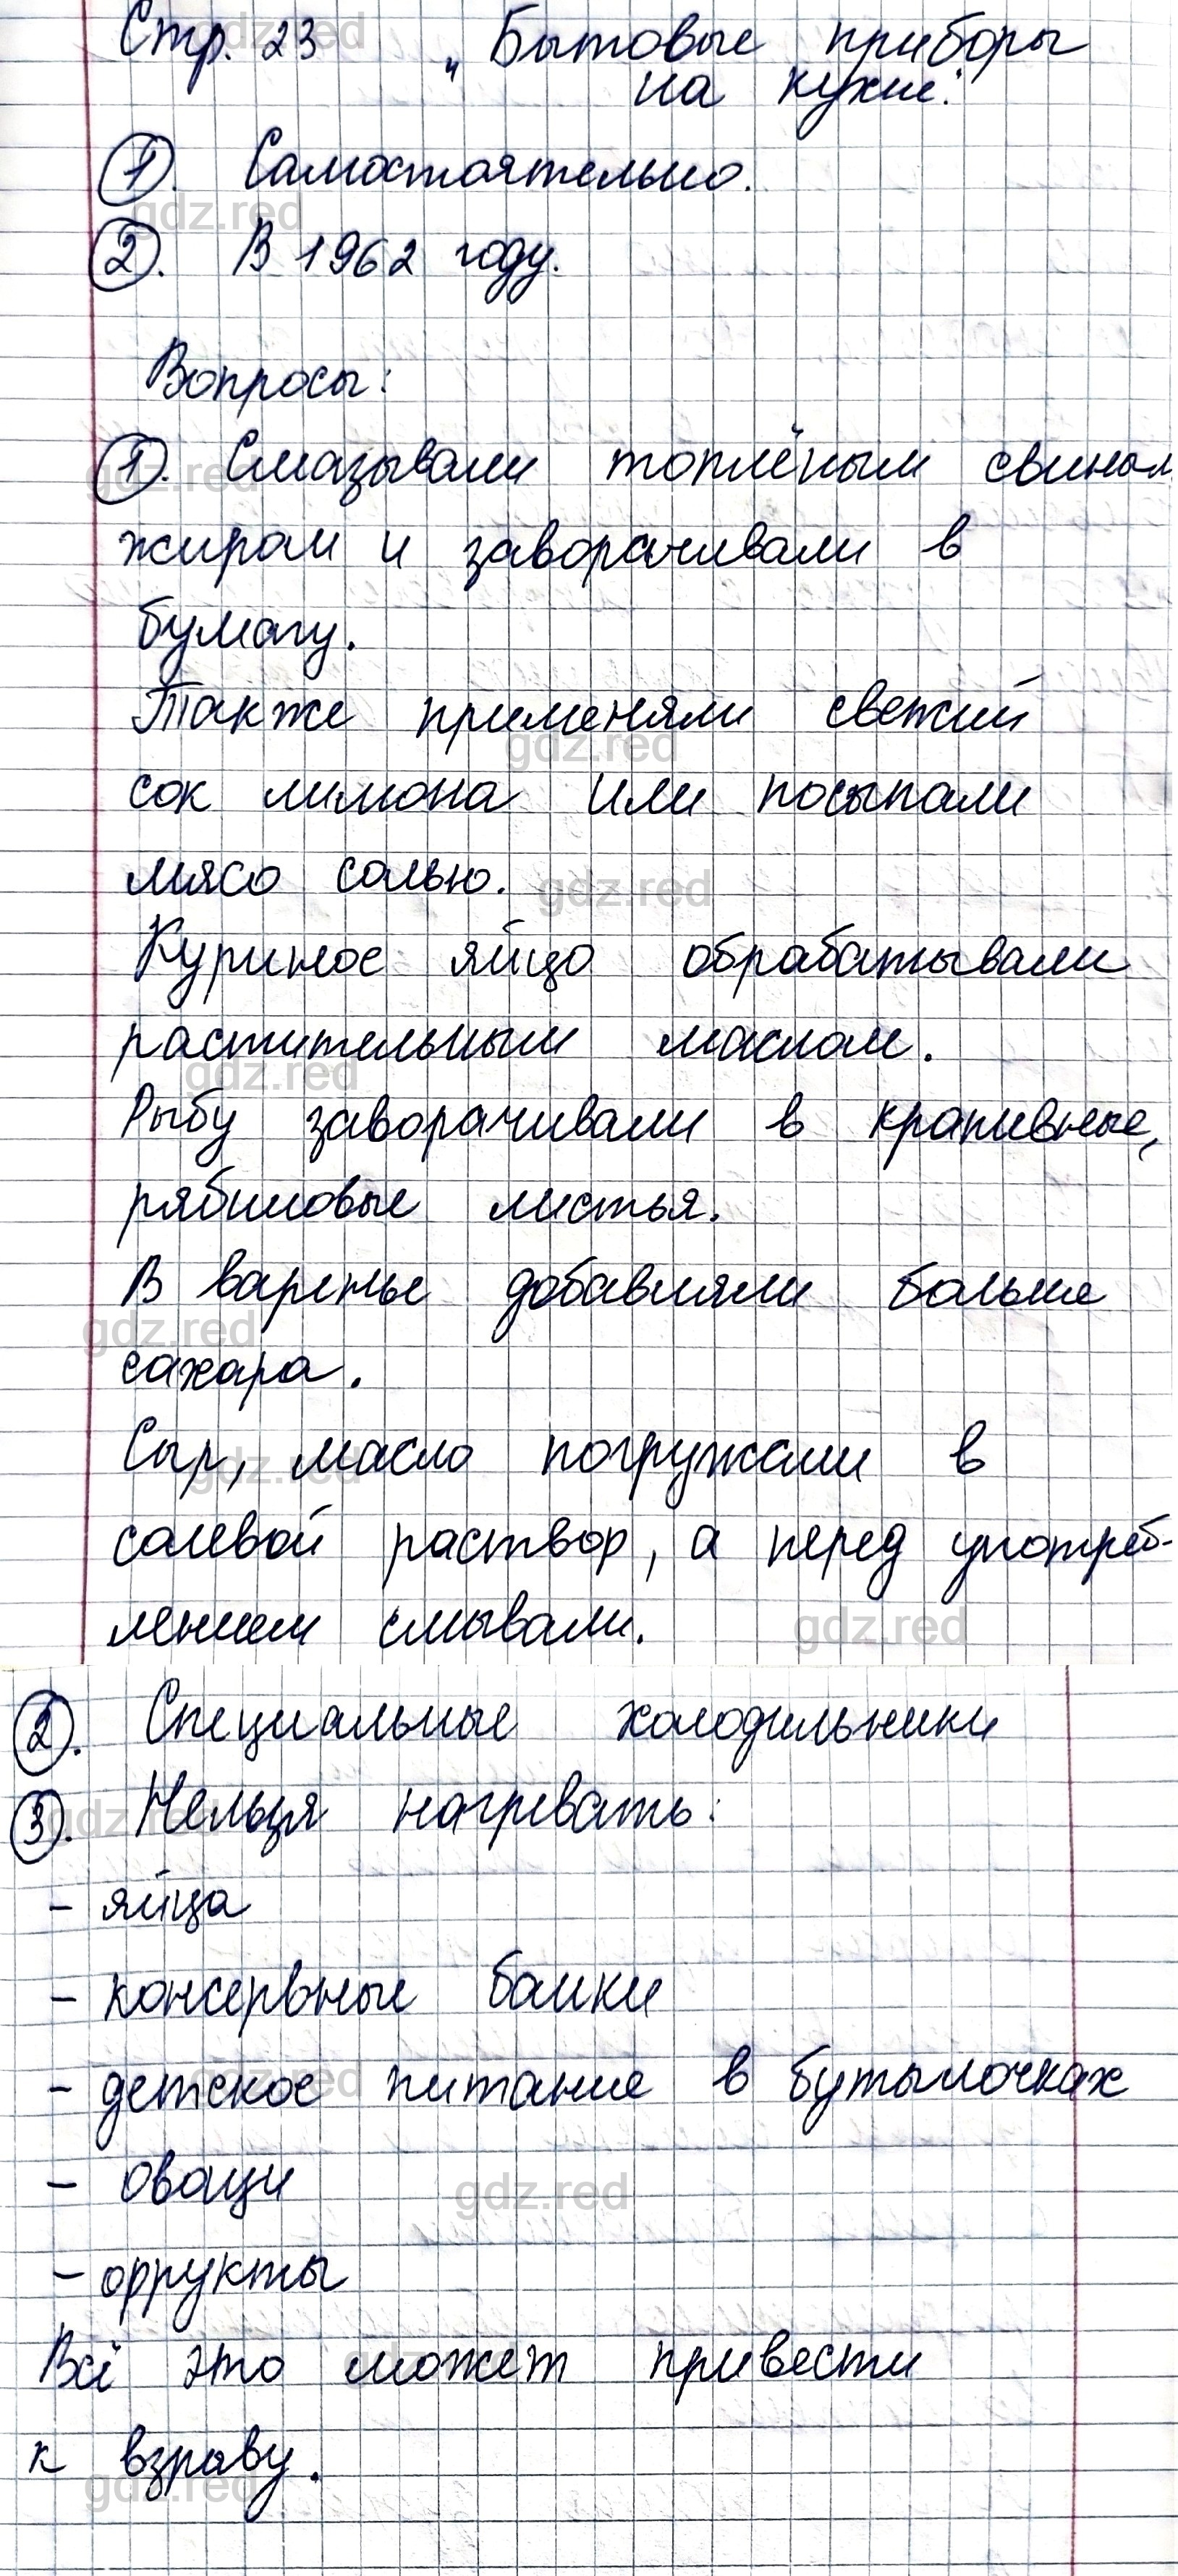 Стр. 23 „Бытовые приборы
на кухне".
1. Самостоятельно.
2. В 1962 году.
Вопросы:
1. Смазывали топлёным свиным
жиром и заворачивали в
бумагу.
Также применяли свежий
сок лимона или посыпали
мясо солью.
Куриное яйцо обрабатывали
растительным маслом.
Рыбу заворачивали в крапивные,
рябиновые листья.
В варенье добавляли больше
сахара.
Сыр, масло погружали в
солевой раствор, а перед употреб-
лением смывали.
2. Специальные холодильники
3. Нельзя нагревать:
- яйца
- консервные банки
- детское питание в бутылочках
- овощи
- фрукты
Всё это может привести
к взраву.
gdz.red
gdz.red
gdz.red
gdz.red
gdz.red
gdz.red
gdz.red
gdz.red
gdz.red
gdz.red
gdz.red
gdz.red
gdz.red
gdz.red